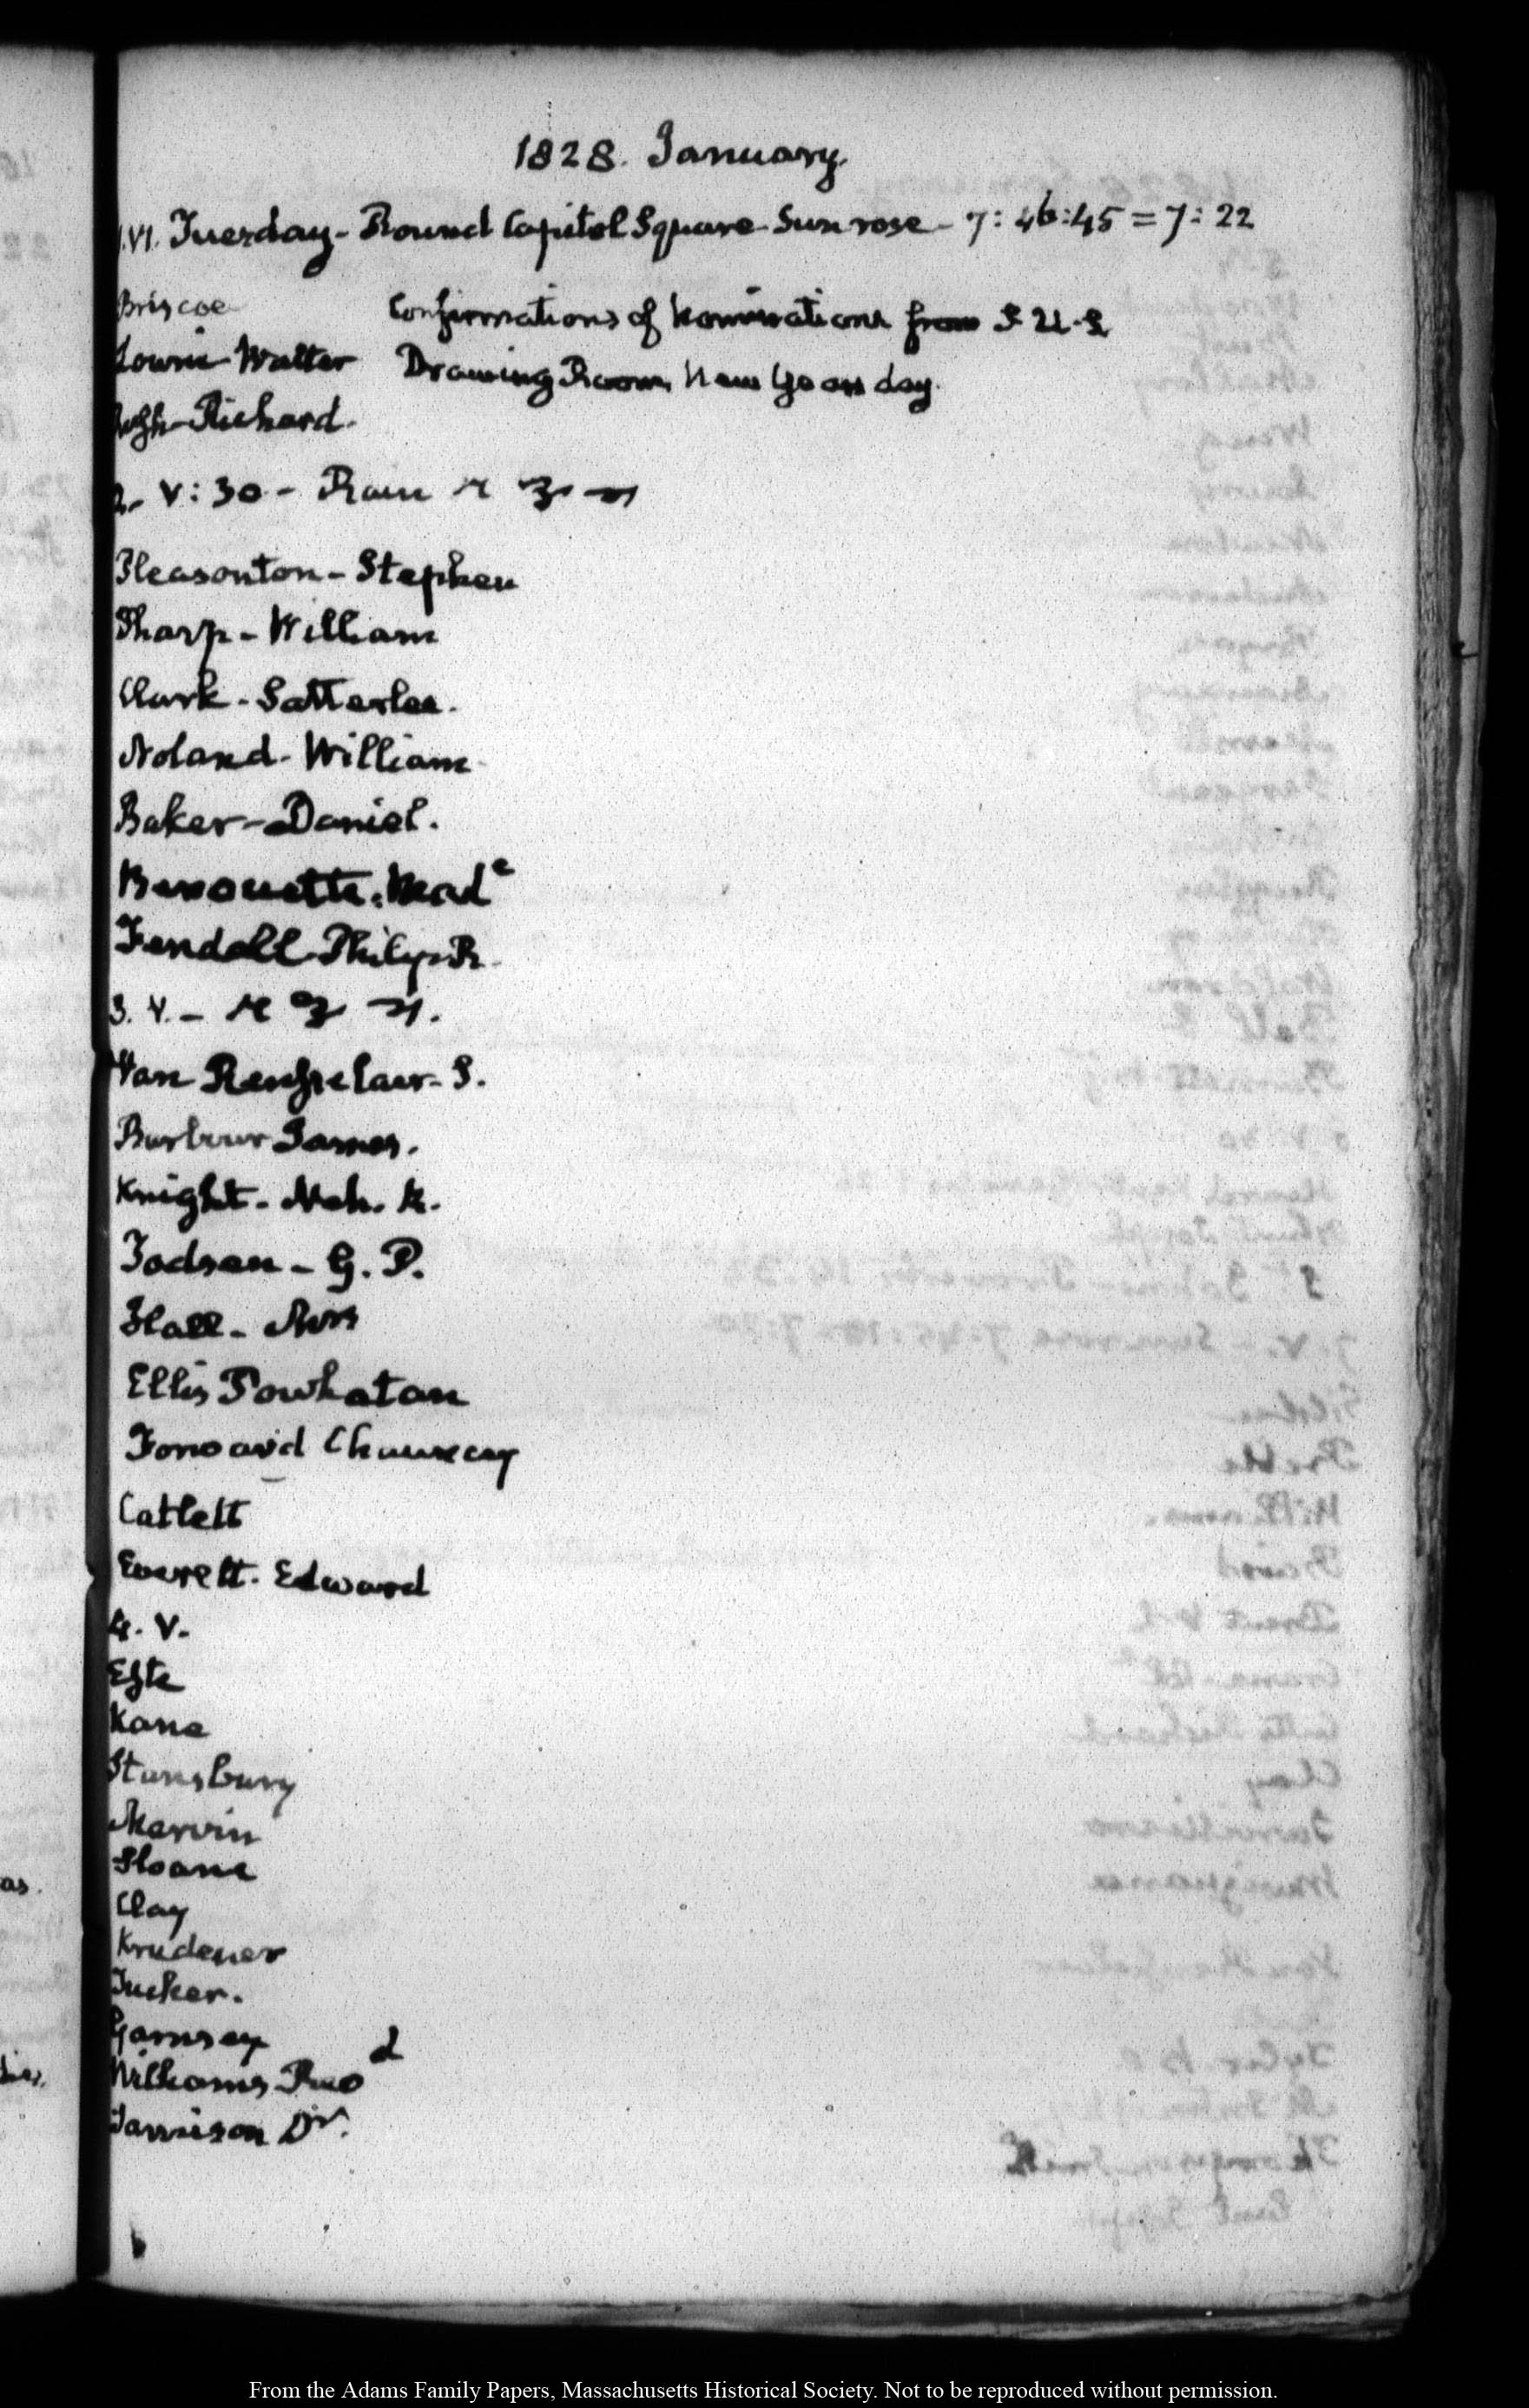 1828. January.
1.VI. Tuesday - Round Capitol Square - Sun rose - 7:46:45 = 7:22
Briscoe Confirmations of Nominations from S. U.S.
Lowrie Walter Drawing Room New Years day.
Rush - Richard.
2. V:30 - Rain
Pleasonton - Stephen
Tharp - William
Clark - Satterlee.
Noland - William
Baker - Daniel.
Fendall Philip R.
3. V. -
Van Rensselaer - S.
Barbour James.
Knight - Neh. R.
Todsen - G. P.
Hall - Mrs
Ellis Powhatan
Forward Chauncey
Catlett
Everett - Edward
4. V.
Este
Kane
Stansbury
Marvin
Sloane
Clay
Krudener
Tucker.
Garnsey
Williams
Jamison Dr.
From the Adams Family Papers, Massachusetts Historical Society. Not to be reproduced without permission.